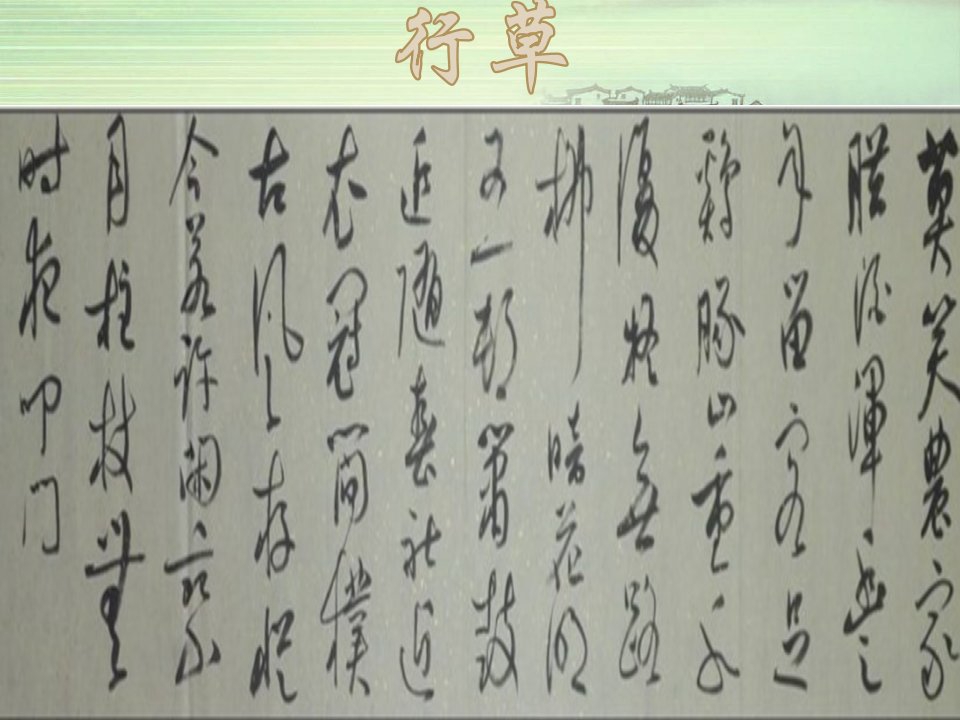 行草
莫笑農家
腊酒渾豐
年留客足
鷄豚山重水
復疑無路
柳暗花明
又一邨簫鼓
追随春社近
衣冠簡樸
古風存從
今若許閑乘
月拄杖無
时夜叩门